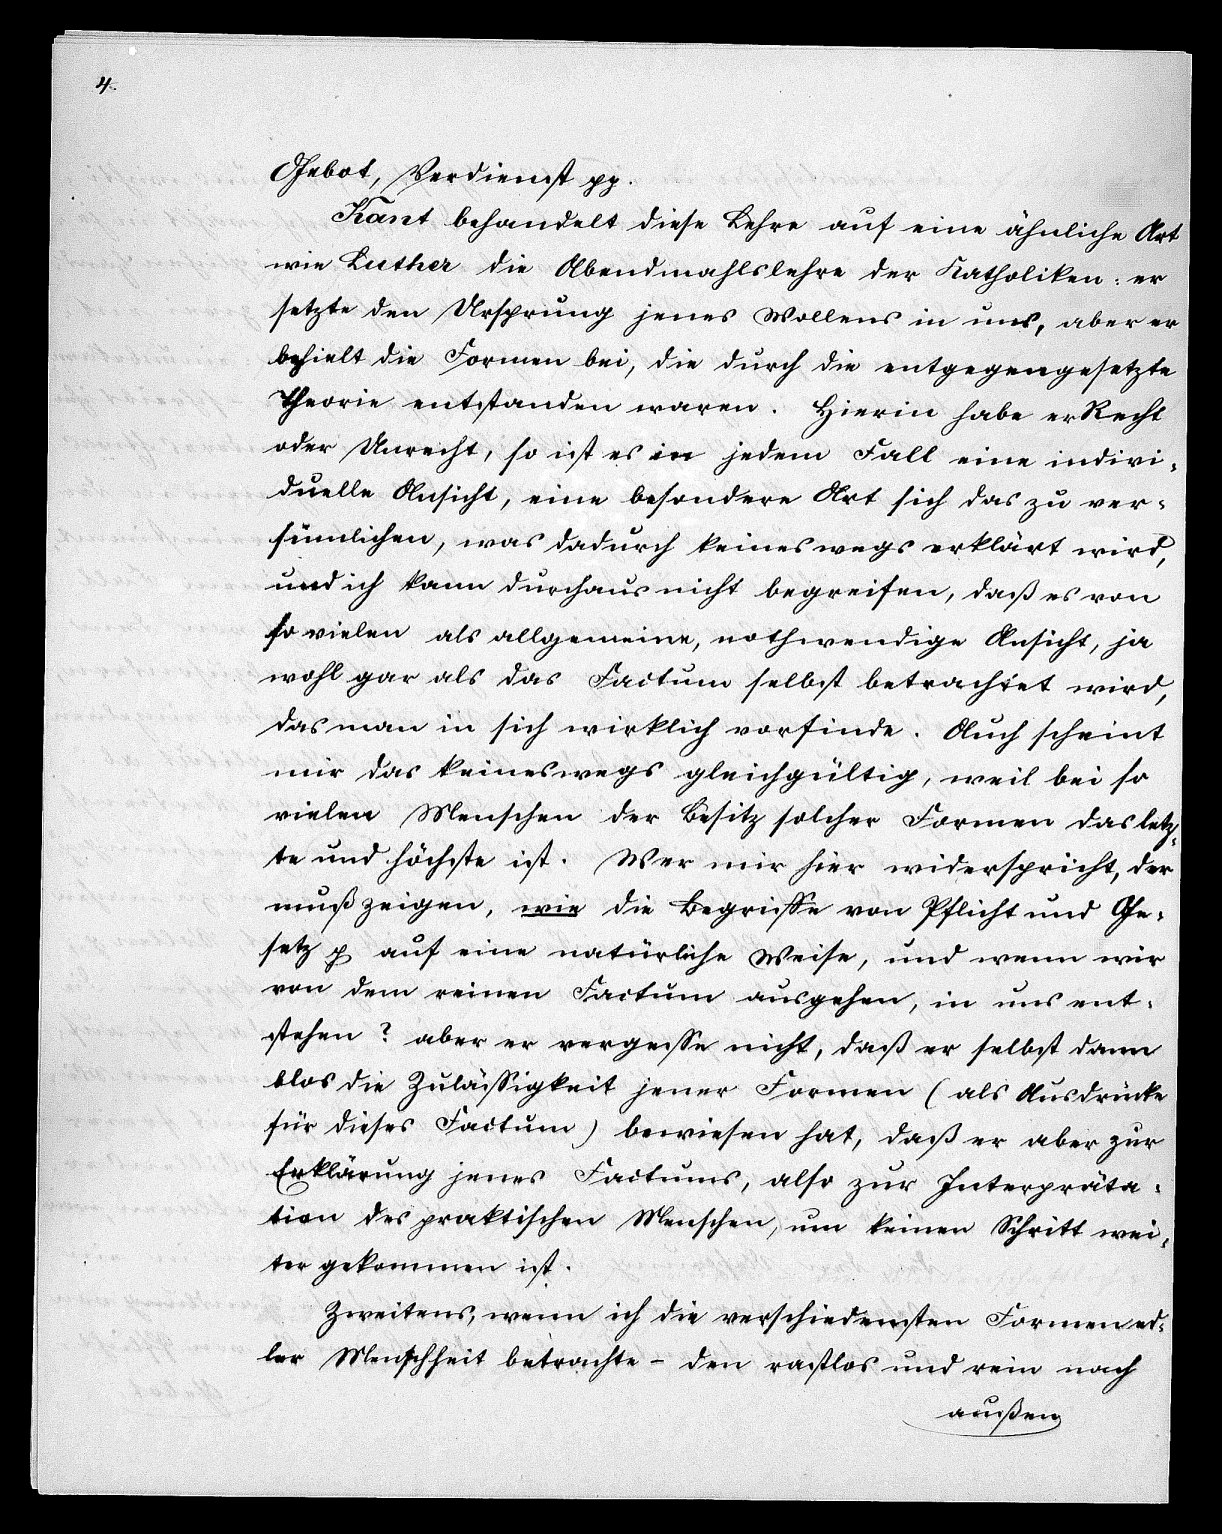 4.
Gebot, Verdienst pp.
Kant behandelt diese Lehre auf eine ähnliche Art
wie Luther die Abendmahlslehre der Katholiken: er
setzte den Ursprung jenes Wollens in uns, aber er
behielt die Formen bei, die durch die entgegengesetzte
Theorie entstanden waren. Hierin habe er Recht
oder Unrecht, so ist es in jedem Fall eine indivi-
duelle Ansicht, eine besondere Art sich das zu ver-
sinnlichen, was dadurch keineswegs erklärt wird,
und ich kann durchaus nicht begreifen, daß es von
so vielen als allgemeine, nothwendige Ansicht, ja
wohl gar als das Factum selbst betrachtet wird,
das man in sich wirklich vorfinde. Auch scheint
mir das keineswegs gleichgültig, weil bei so
vielen Menschen der Besitz solcher Formen das letz-
te und höchste ist. Wer mir hier widerspricht, der
muß zeigen, wie die Begriffe von Pflicht und Ge-
setz p auf eine natürliche Weise, und wenn wir
von dem reinen Factum ausgehen, in uns ent-
stehen? aber er vergesse nicht, daß er selbst dann
blos die Zulässigkeit jener Formen (als Ausdrücke
für dieses Factum) bewiesen hat, daß er aber zur
Erklärung jenes Factums, also zur Interpräta-
tion des praktischen Menschen, um keinen Schritt wei-
ter gekommen ist.
Zweitens, wenn ich die verschiedensten Formen ed-
ler Menschheit betrachte - den rastlos und rein nach
außen